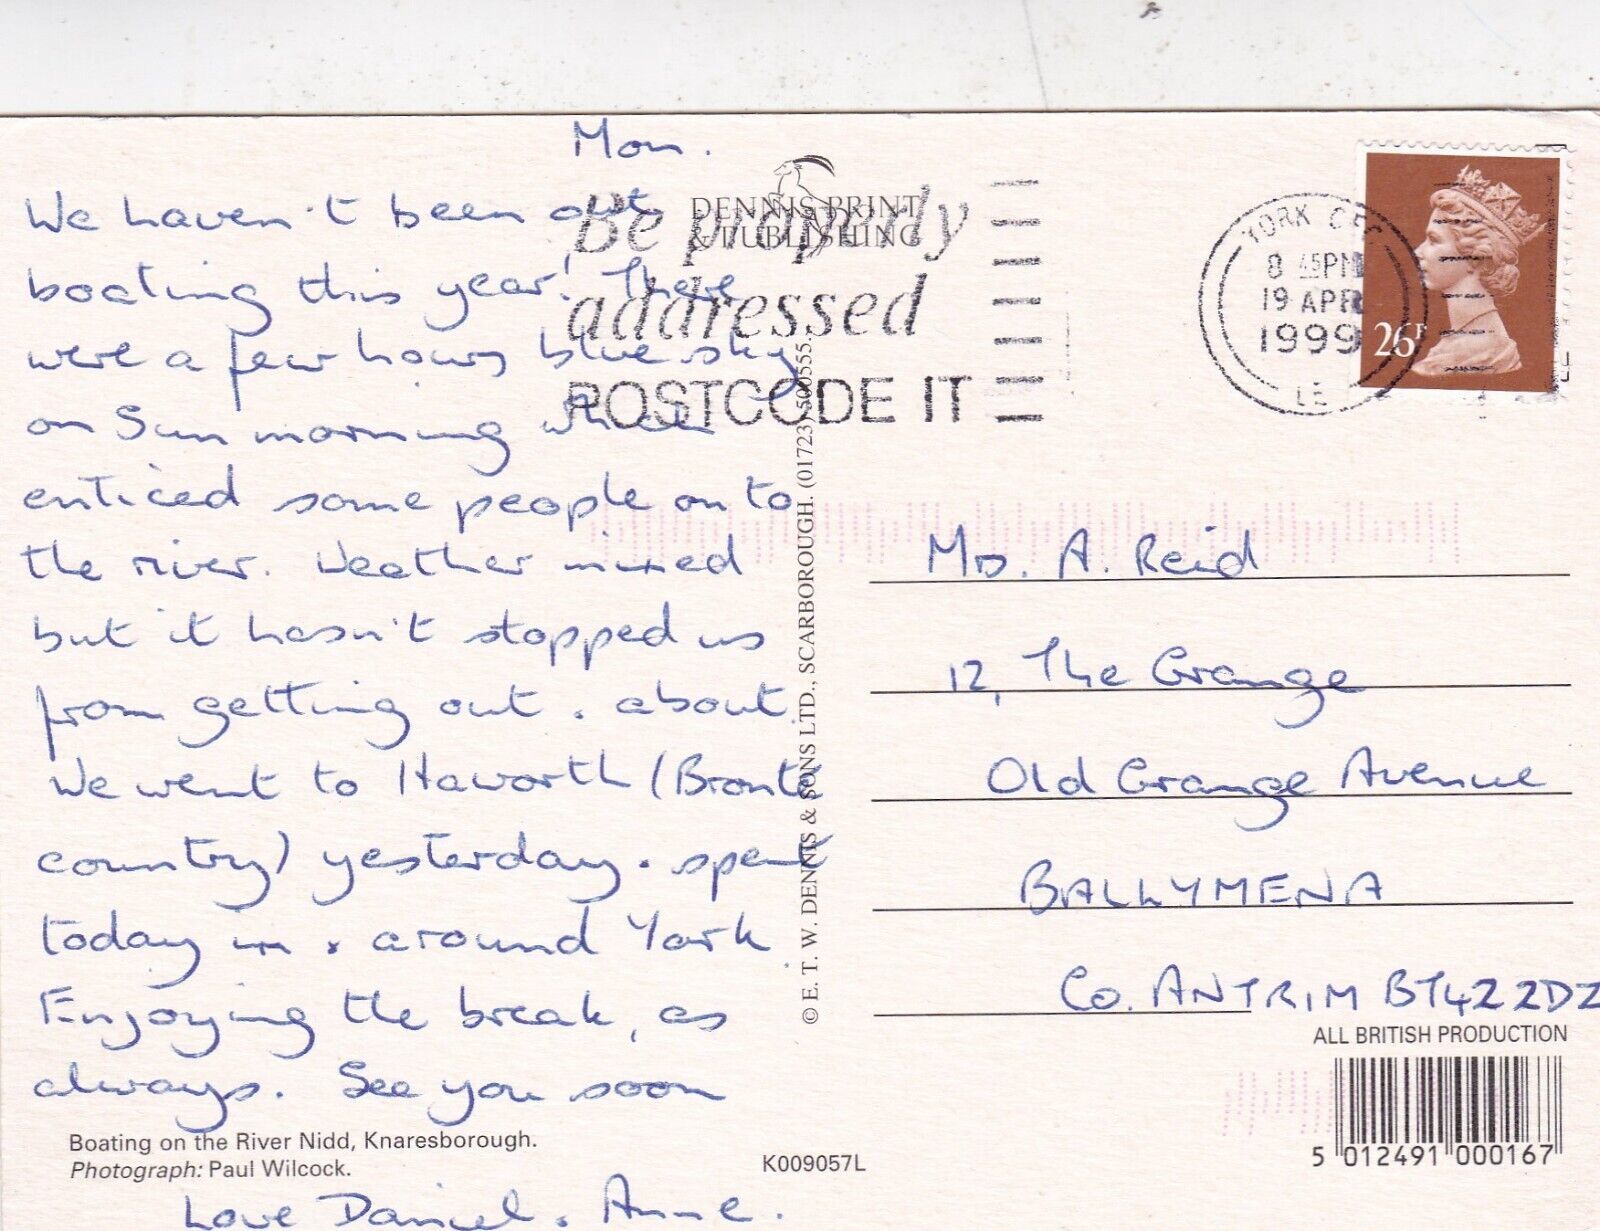 Mon.
We haven't been out
boating this year! There
were a few hours blue sky
on Sun morning which
enticed some people on to
the river. Weather mixed
but it hasn't stopped us
from getting out . about.
We went to Haworth (Bronte
country) yesterday . spent
today in . around York.
Enjoying the break, as
always. See you soon
Love Daniel . Anne.
Boating on the River Nidd, Knaresborough.
Photograph: Paul Wilcock.
K009057L
DENNIS PRINT
& PUBLISHING
© E. T. W. DENNIS & SONS LTD., SCARBOROUGH. (01723) 500555.
Be properly
addressed
POSTCODE IT
YORK
8 45PM
19 APR
1999
LE
26P
A. Reid
12, The Grange
Old Grange Avenue
BALLYMENA
Co. ANTRIM BT42 2DZ
ALL BRITISH PRODUCTION
5 012491 000167